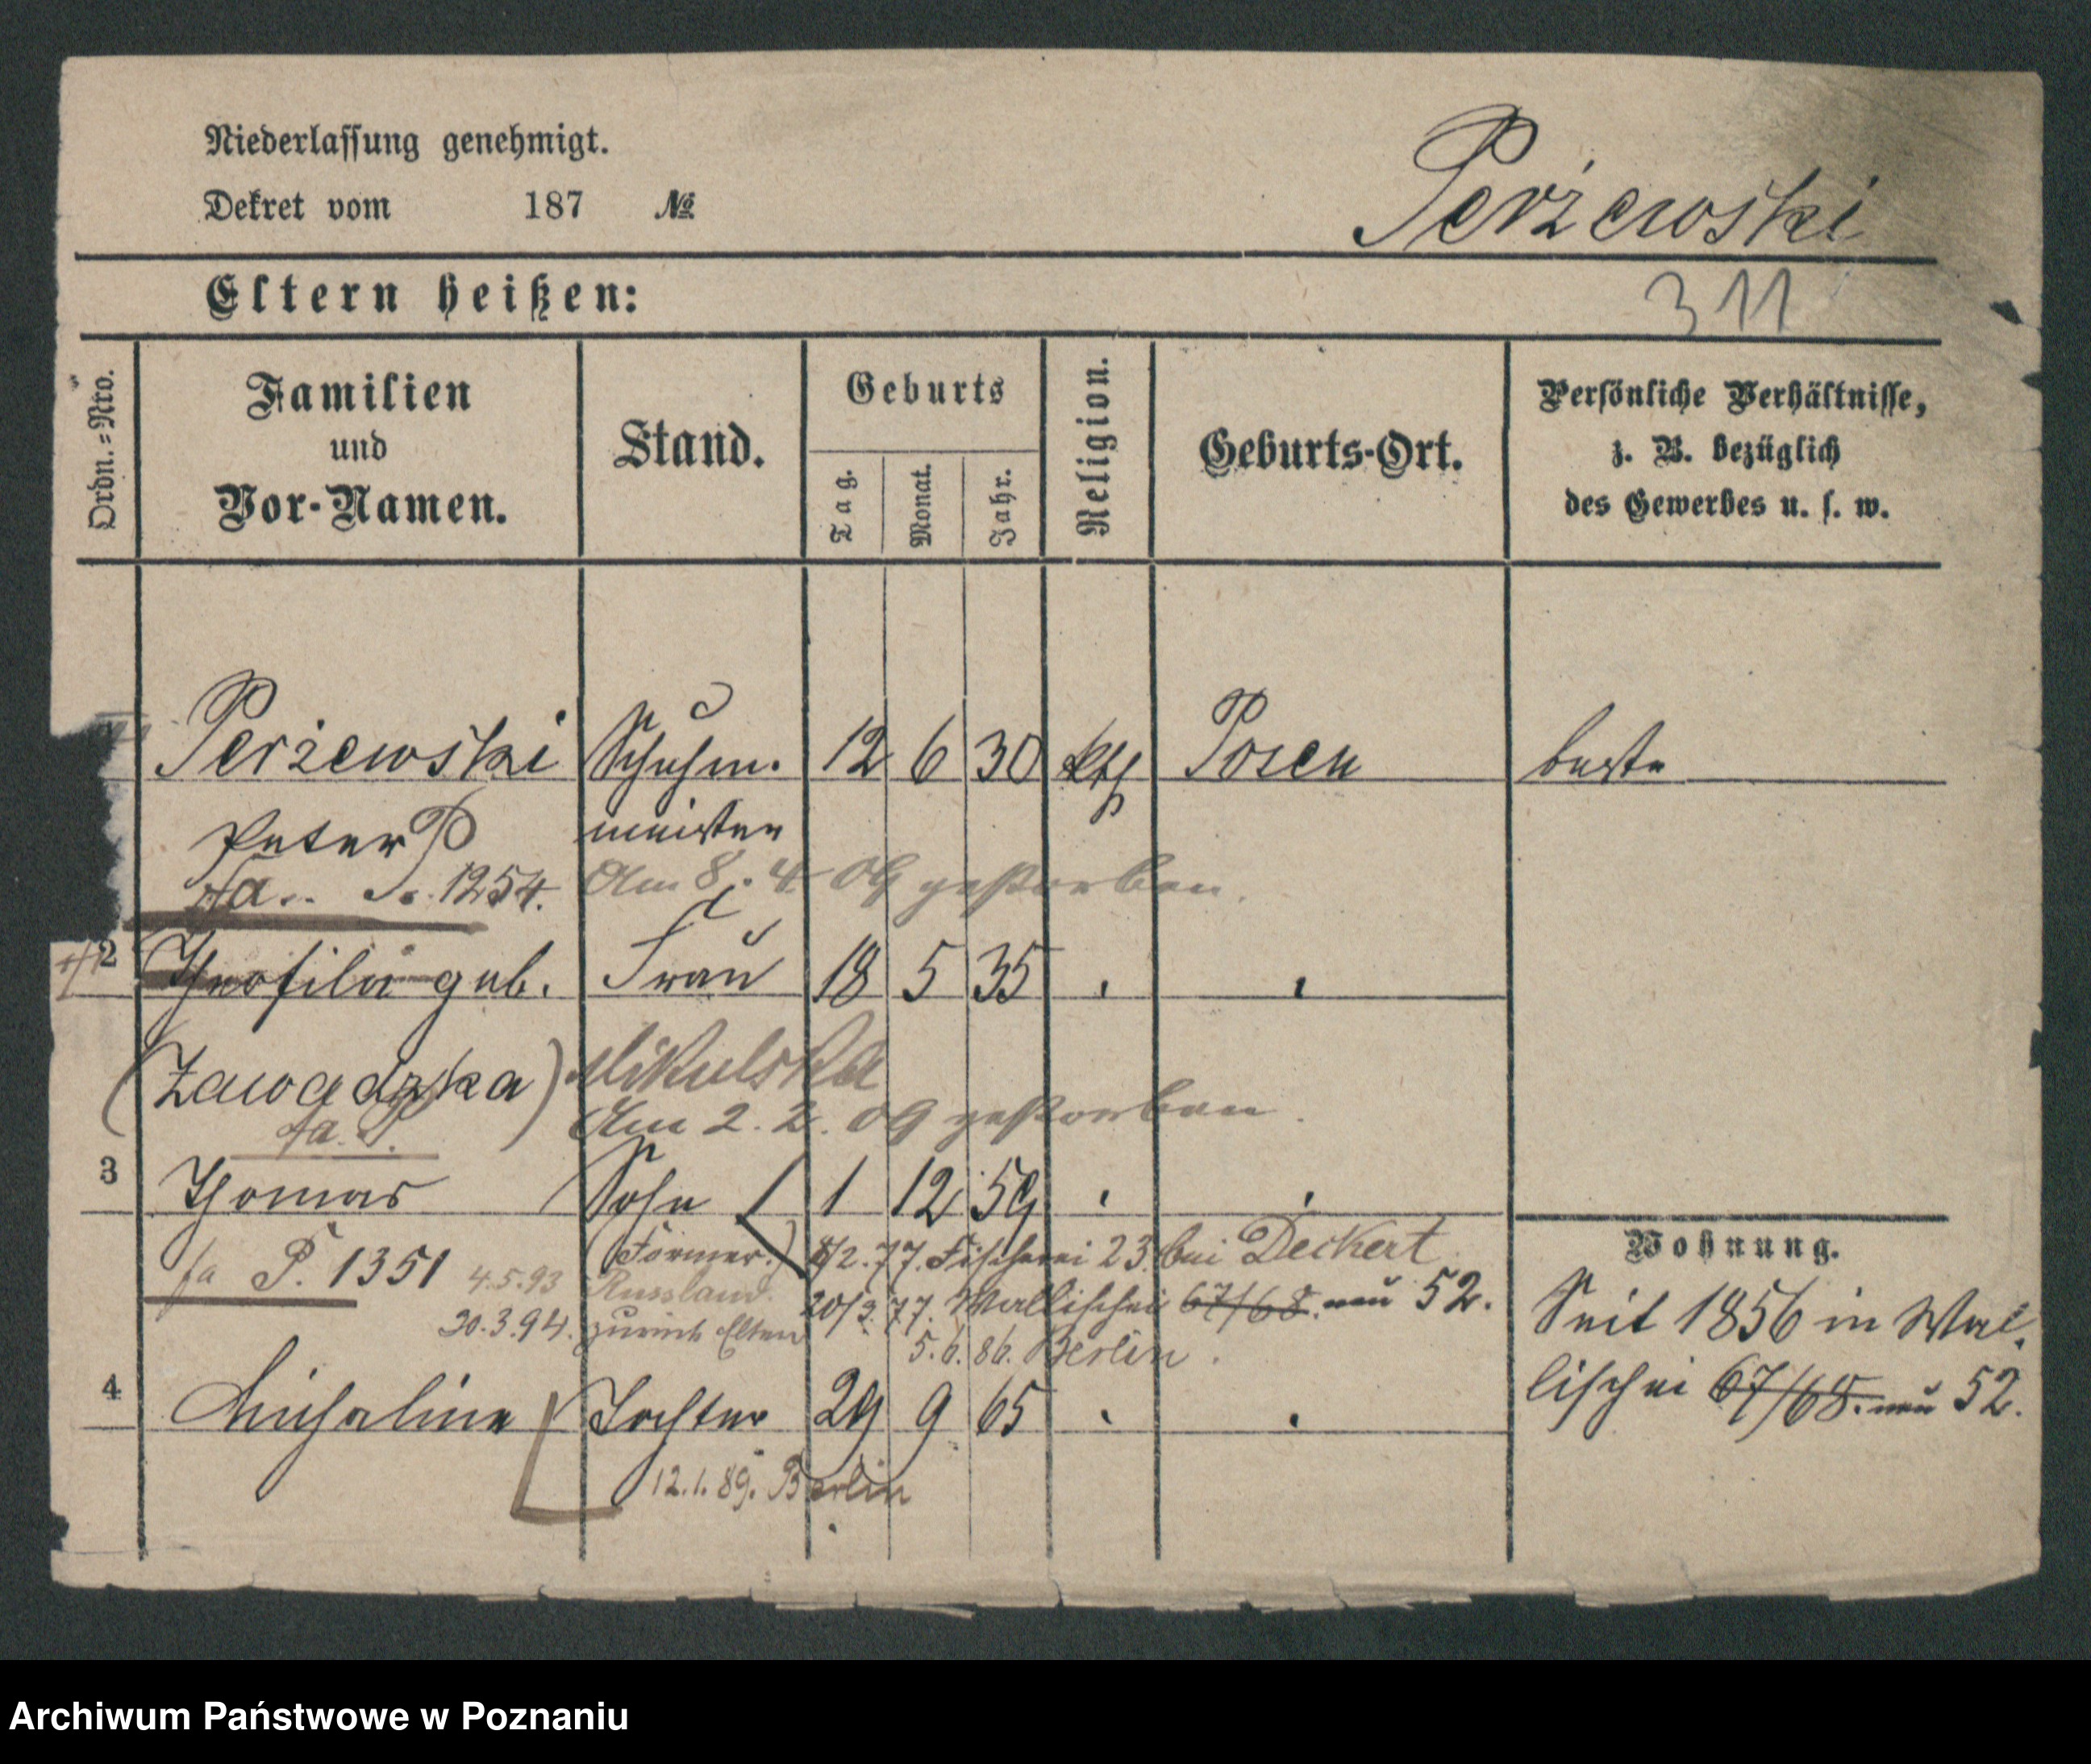 Niederlassung genehmigt.
Dekret vom 187 №
Perżewski
Eltern heißen:
311
Ordn.=Nro.
Familien
und
Vor-Namen.
Stand.
Geburts
Tag.
Monat.
Jahr.
Religion.
Geburts-Ort.
Persönliche Verhältnisse,
z. B. bezüglich
des Gewerbes u. s. w.
Perżewski Schuhm. 12 6 30 kth Posen
Peter P meister
fa. 1254. Am 8. 4 09 gestorben.
2 Theofila geb. Frau 18 5 35 " "
(Zawadzka) Mikulska
fa. P. Am 2. 2. 09 gestorben.
3 Thomas Sohn 1 12 59 " "
(Former.) 8/2.77. Fischerei 23. bei Deckert
fa P. 1351 4.5.93 Russland. 20/3.77. Wallischei 67/68. neu 52.
30.3.94. zurück Eltern 5.6.86. Berlin.
4 Michaline Tochter 29 9 65 " "
12.1.89. Berlin
Wohnung.
Seit 1856 in Wal-
lischei 67/68. neu 52.
Archiwum Państwowe w Poznaniu